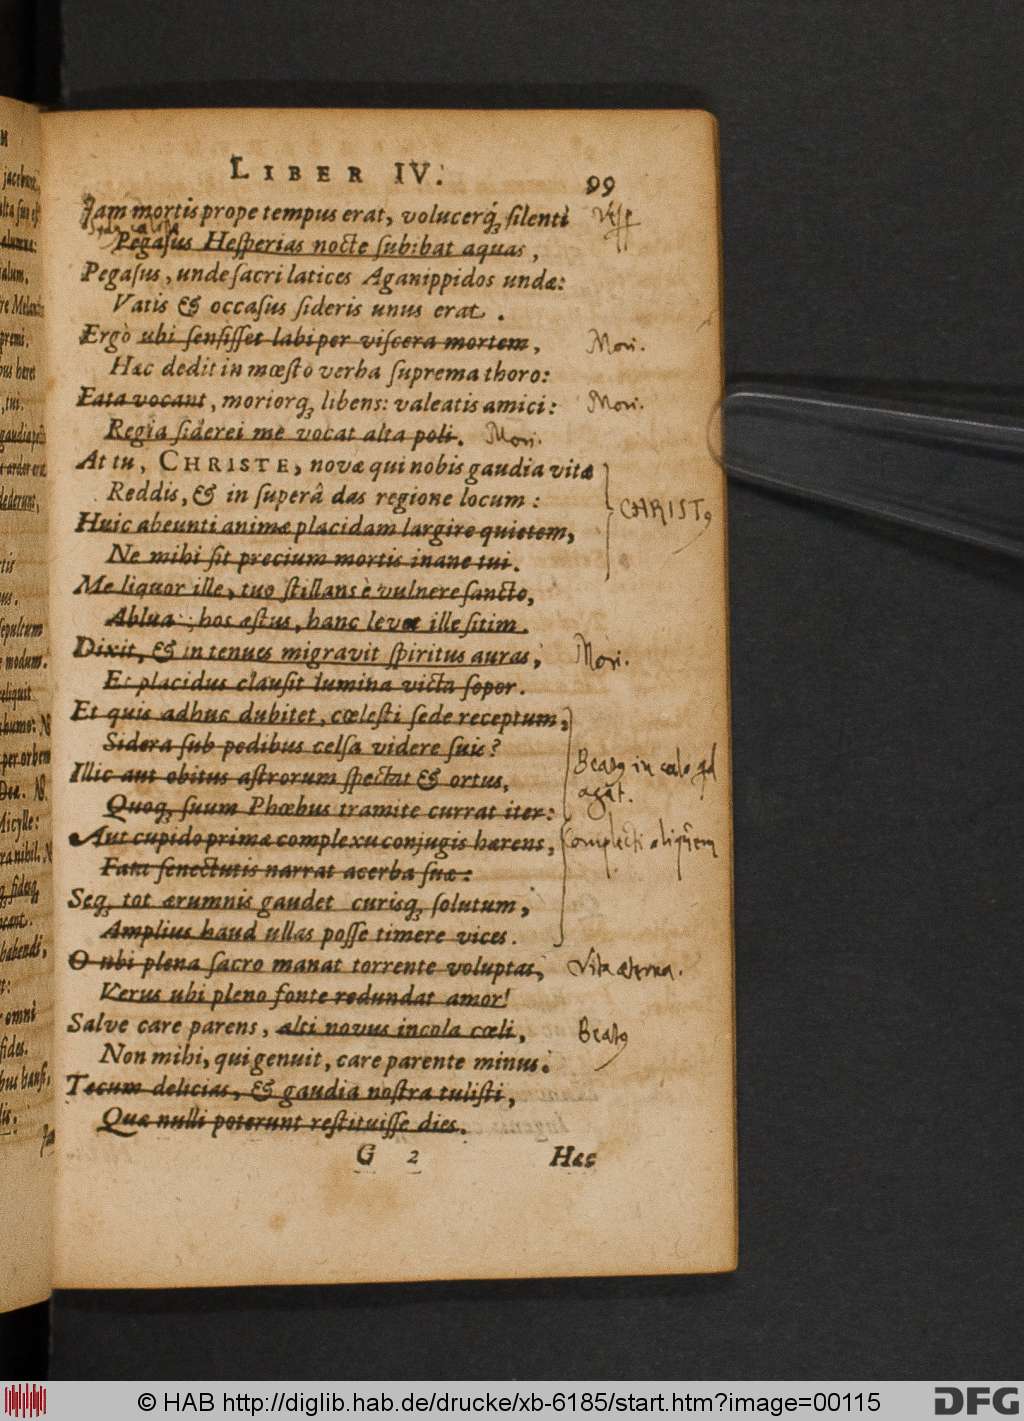 LIBER IV.
99
Jam mortis prope tempus erat, volucerq́; silenti
Vesp
Pegasus Hesperias nocte subibat aquas,
Pegasus, unde sacri latices Aganippidos undæ:
Vatis & occasus sideris unus erat.
Ergò ubi sensisset labi per viscera mortem,
Mori.
Hæc dedit in mœsto verba suprema thoro:
Fata vocant, moriorq; libens: valeatis amici:
Mori.
Regia siderei me vocat alta poli.
Mori.
At tu, CHRISTE, novæ qui nobis gaudia vitæ
Reddis, & in superâ das regione locum:
CHRIST9
Huic abeunti animæ placidam largire quietem,
Ne mihi sit precium mortis inane tui.
Me liquor ille, tuo stillans è vulnere sancto,
Abluat; hos æstus, hanc levet ille sitim.
Dixit, & in tenues migravit spiritus auras,
Mori.
Et placidus clausit lumina victa sopor.
Et quis adhuc dubitet, cœlesti sede receptum,
Sidera sub pedibus celsa videre suis?
Beat9 in cælo qd
Illic aut obitus astrorum spectat & ortus,
agat.
Quoq; suum Phœbus tramite currat iter:
Aut cupido primæ complexu conjugis hærens,
Complecti aliquem
Fata senectutis narrat acerba suæ:
Seq; tot ærumnis gaudet curisq; solutum,
Amplius haud ullas posse timere vices.
O ubi plena sacro manat torrente voluptas,
Vita æterna.
Verus ubi pleno fonte redundat amor!
Salve care parens, alti novus incola cœli,
Beat9
Non mihi, qui genuit, care parente minus.
Tecum delicias, & gaudia nostra tulisti,
Quæ nulli poterunt restituisse dies.
G 2
Hæc
© HAB http://diglib.hab.de/drucke/xb-6185/start.htm?image=00115
DFG